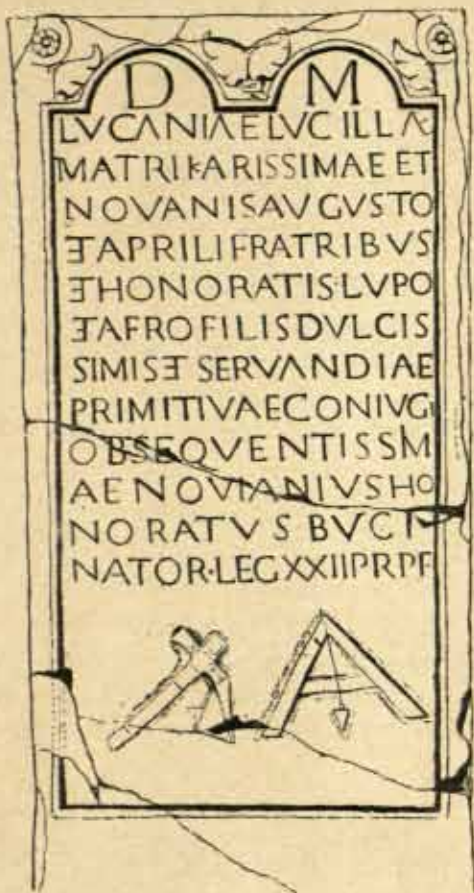 D M
LVCANIAE LVCILLAE
MATRI KARISSIMAE ET
NOVANIS AVGVSTO
ET APRILI FRATRIBVS
ET HONORATIS·LVPO
ET AFRO FILIS DVLCIS
SIMIS ET SERVANDIAE
PRIMITIVAE CONIVGI
OBSEQVENTISSIM
AE NOVIANIVS HO
NORATVS BVCI
NATOR·LEG XXII PR P F